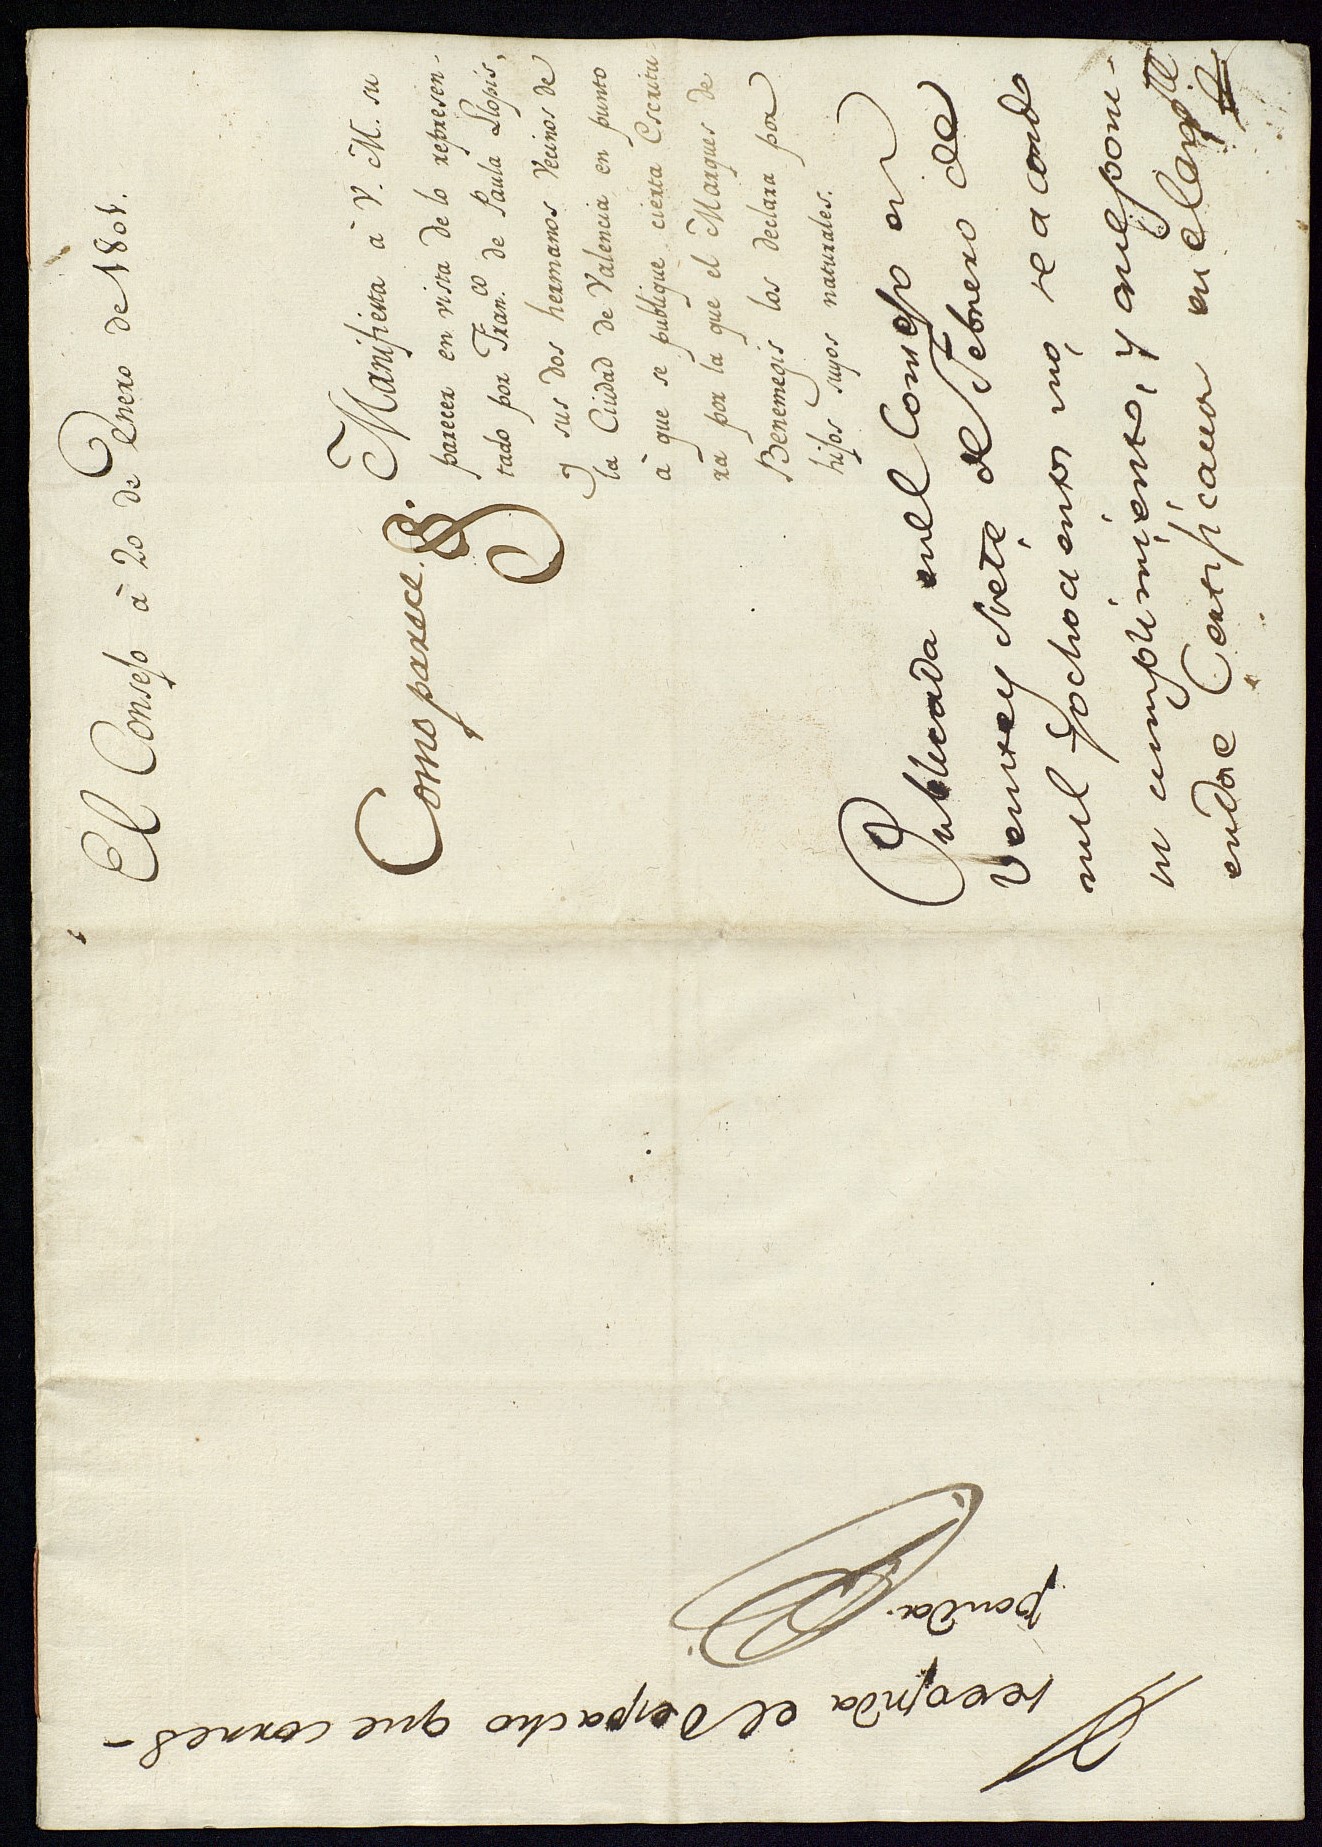 El Consejo à 20 de Enero de 1801.
Manifiesta à V. M. su
parecer en vista de lo represen-
tado por Fran.co de Paula Llopis,
y sus dos hermanos Vecinos de
la Ciudad de Valencia en punto
à que se publique cierta Escritu-
ra por la que el Marques de
Benemegis los declara por
hijos suyos naturales.
Como parece.
Publicada en el Consejo en
veinte y siete de Febrero de
mil ochocientos uno, se acordó
su cumplimiento, y que poni-
endose Certificacion en el
recojida el Despacho que corres-
ponda.